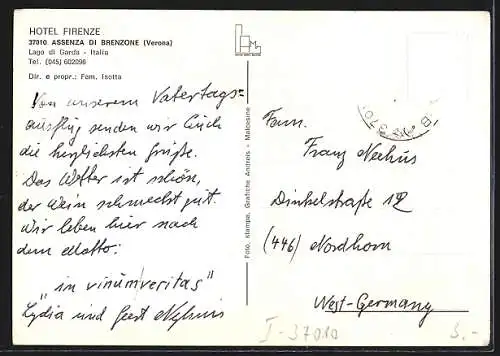 HOTEL FIRENZE
37010 ASSENZA DI BRENZONE (Verona)
Lago di Garda - Italia
Tel. (045) 602096
Dir. e propr.: Fam. Isotta
Von unserem Vatertags=
ausflug senden wir Euch
die herzlichsten Grüße.
Das Wetter ist schön,
der Wein schmeckt gut.
Wir leben hier nach
dem Motto:
"in vinum veritas"
Lydia und
Foto, stampa, Grafiche Andreis - Malcesine
Fam.
Franz
Dinkelstraße 12
(446) Nordhorn
West-Germany
I-37010
3.-